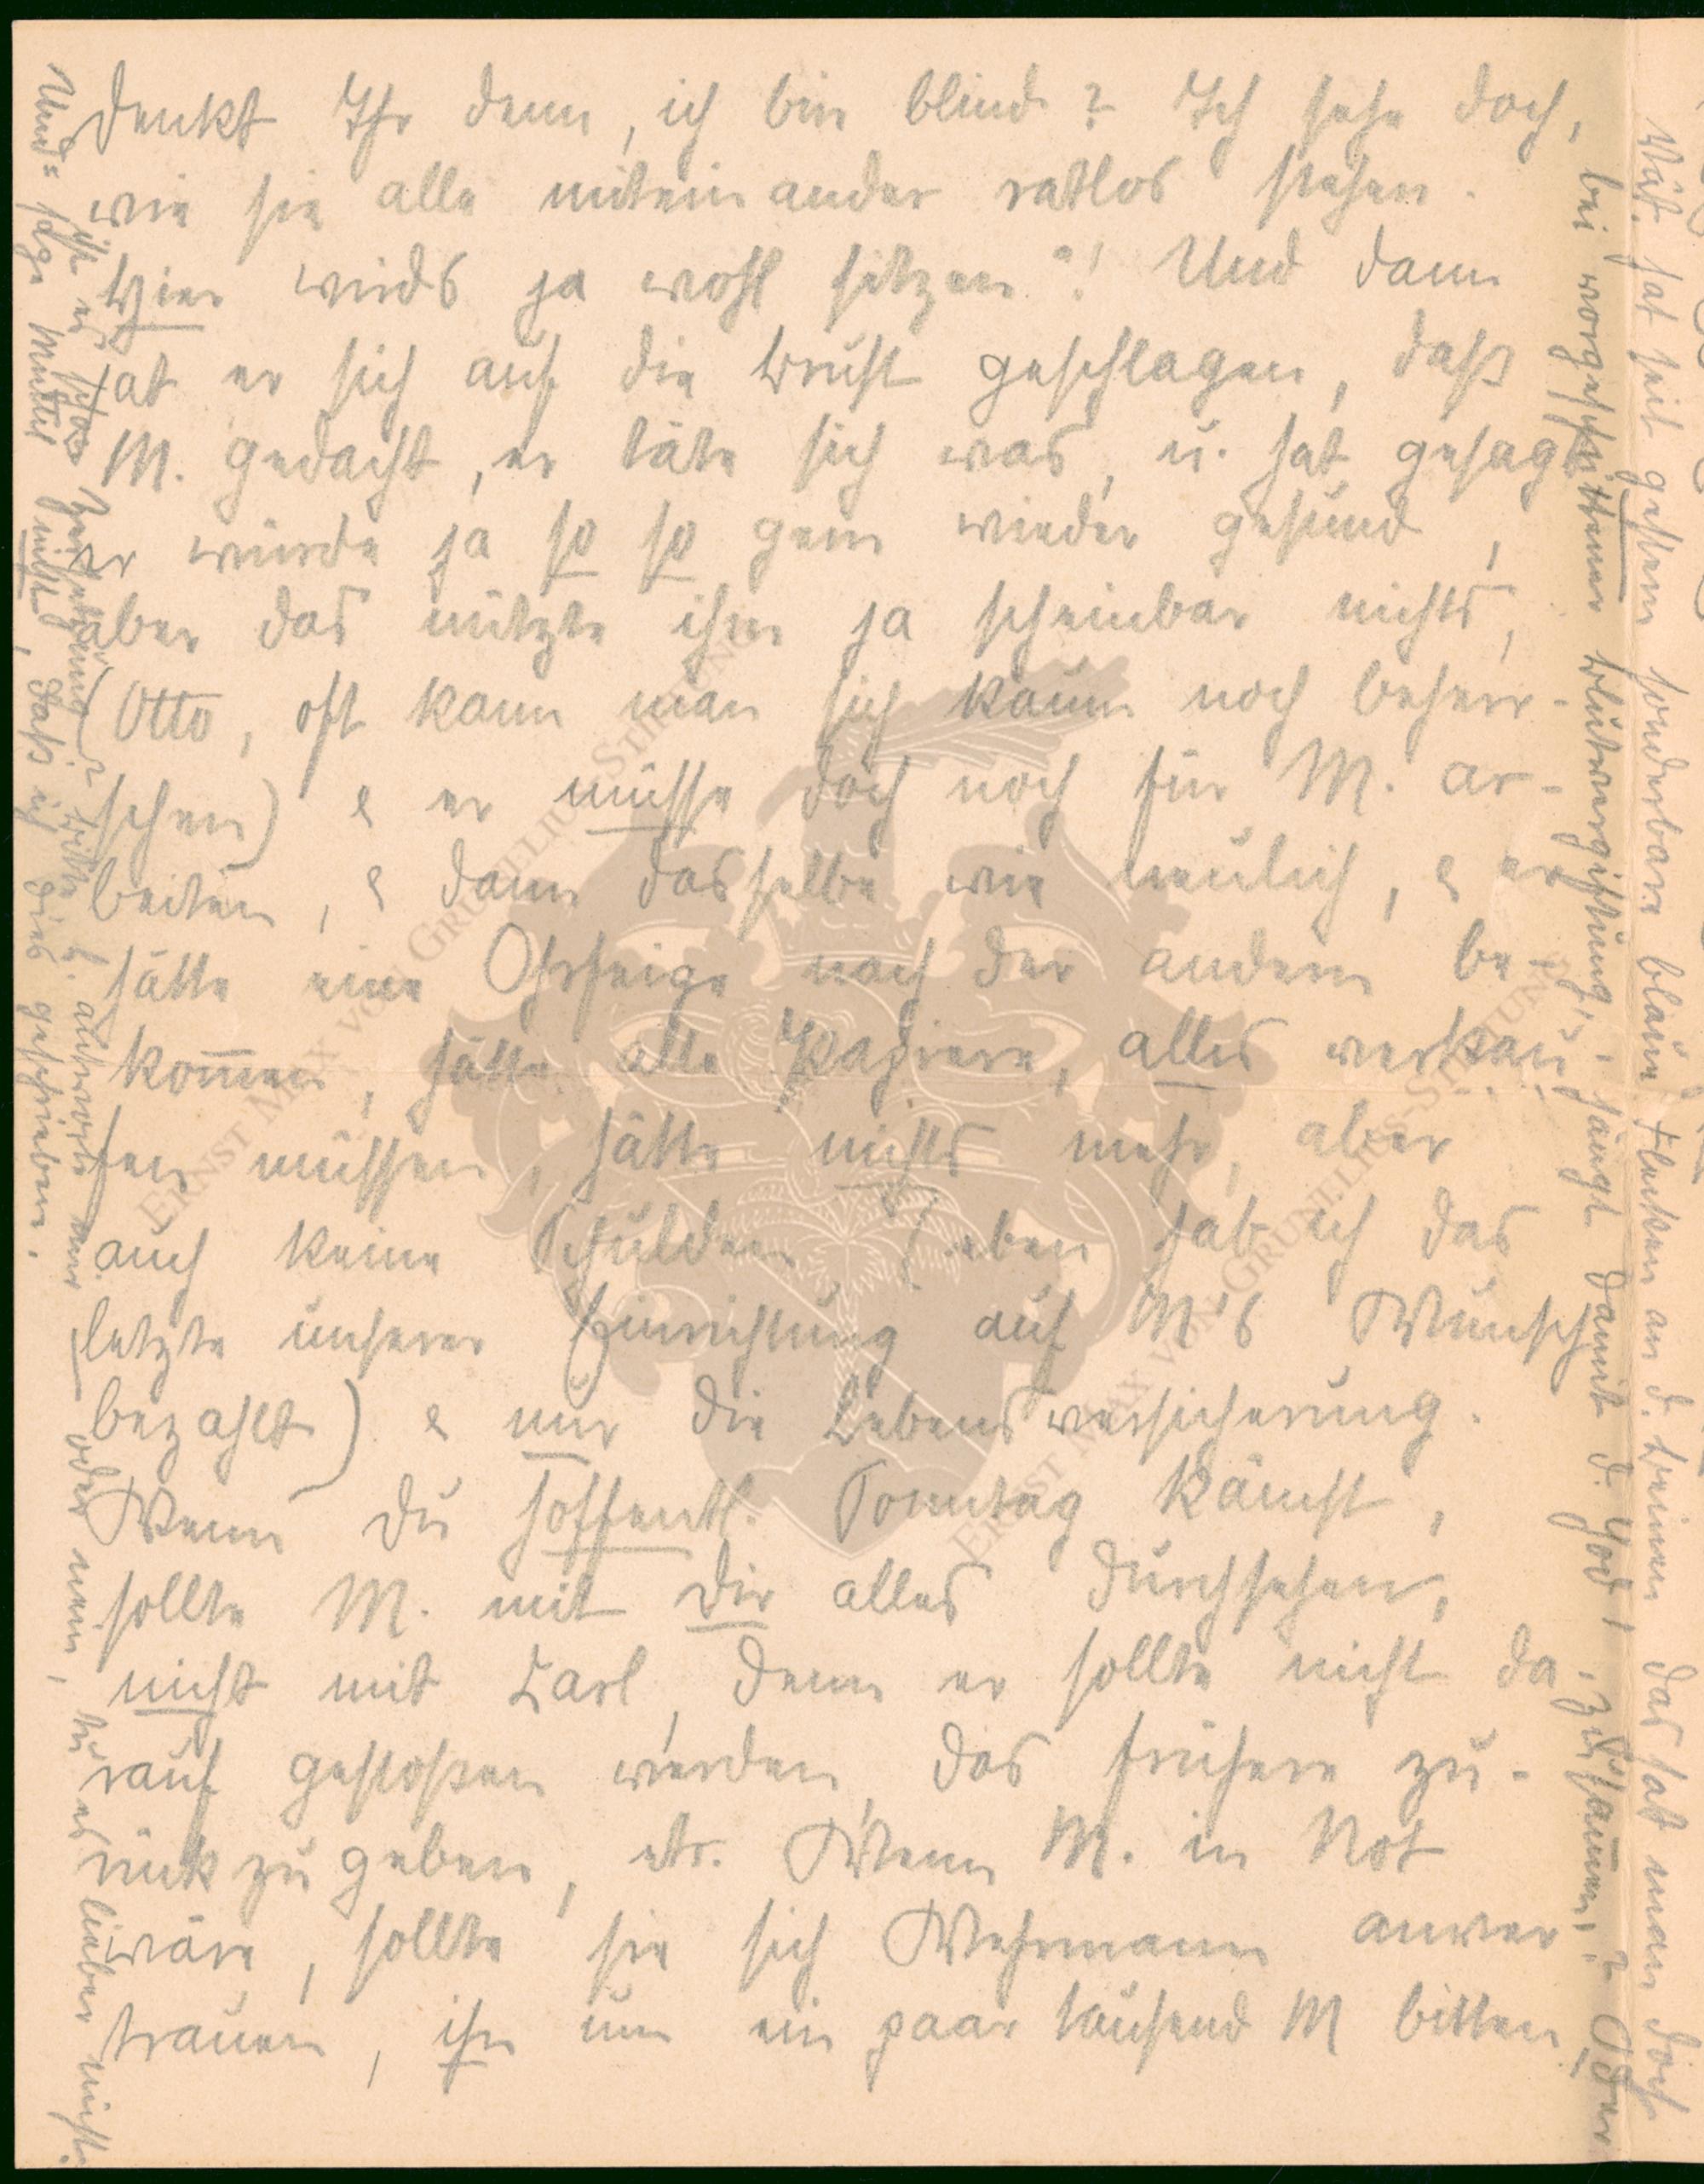 denkt Ihr denn, ich bin blind? Ich sehe doch,
wie sie alle miteinander ratlos stehen.
Hier wirds ja wohl sitzen"! Und dann
hat er sich auf die Brust geschlagen, daß
M. gedacht, er täte sich was, u. hat gesagt
er würde ja so so gern wieder gesund,
aber das nützte ihm ja scheinbar nichts,
(Otto, oft kann man sich kaum noch beherr-
schen) & er müsse doch noch für M. ar-
beiten, & dann dasselbe wie neulich, & er
hätte eine Ohrfeige nach der andern be-
kommen, hätte alle Papiere, alles verkau-
fen müssen, hätte nichts mehr, aber
auch keine Schulden (eben hab ich das
letzte unserer Einrichtung auf M's Wunsch
bezahlt) & nur die Lebensversicherung.
Wenn Du hoffentl. Sonntag kämst,
sollte M. mit Dir alles durchsehen,
nicht mit Carl, denn er sollte nicht da-
rauf gestoßen werden, das frühere zu-
rück zu geben, etc. Wenn M. in Not
wäre, sollte sie sich Wehrmann anver-
trauen, ihn um ein paar tausend M bitten,
Vät. hat seit gestern sonderbare blaue Flecken an d. Beinen das hat man doch
bei vorgeschrittener Blutvergiftung, hängt damit d. Jod, zusammen? Oder
ist es schon Zersetzung? Bitte h. antworte mir oder nein, tu es lieber nicht.
Und: sage Mutter nicht, daß ich dies geschrieben.
ERNST MAX VON GRUNELIUS-STIFTUNG
ERNST MAX VON GRUNELIUS-STIFTUNG